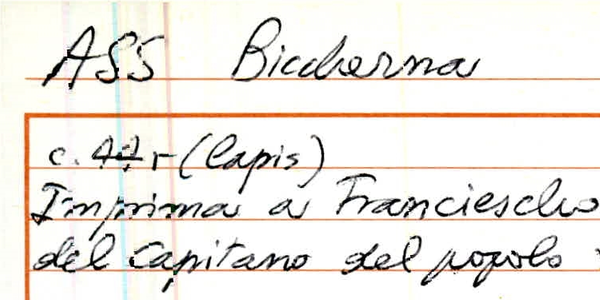 ASS Biccherna
c. 47r (lapis)
Imprima a Franciescho
del Capitano del popolo